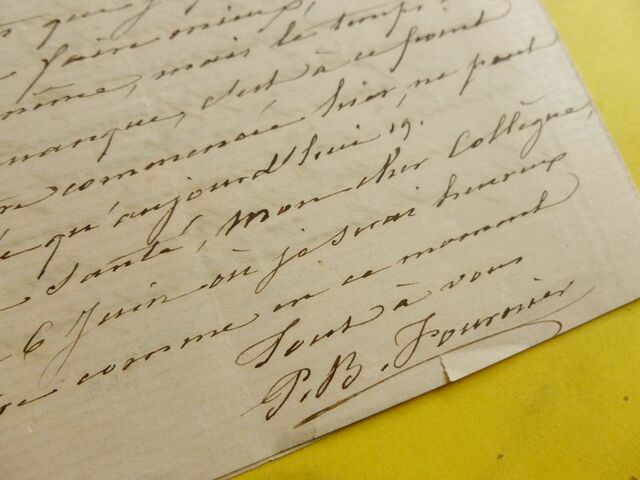 que
faire mieux,
même, mais le temps
manque, c'est à ce point
commencée hier, ne peut
qu'aujourd'hui 19.
santé, mon cher Collègue,
6 Juin où je serai heureux
comme en ce moment
Tout à vous
P. B. Fournier